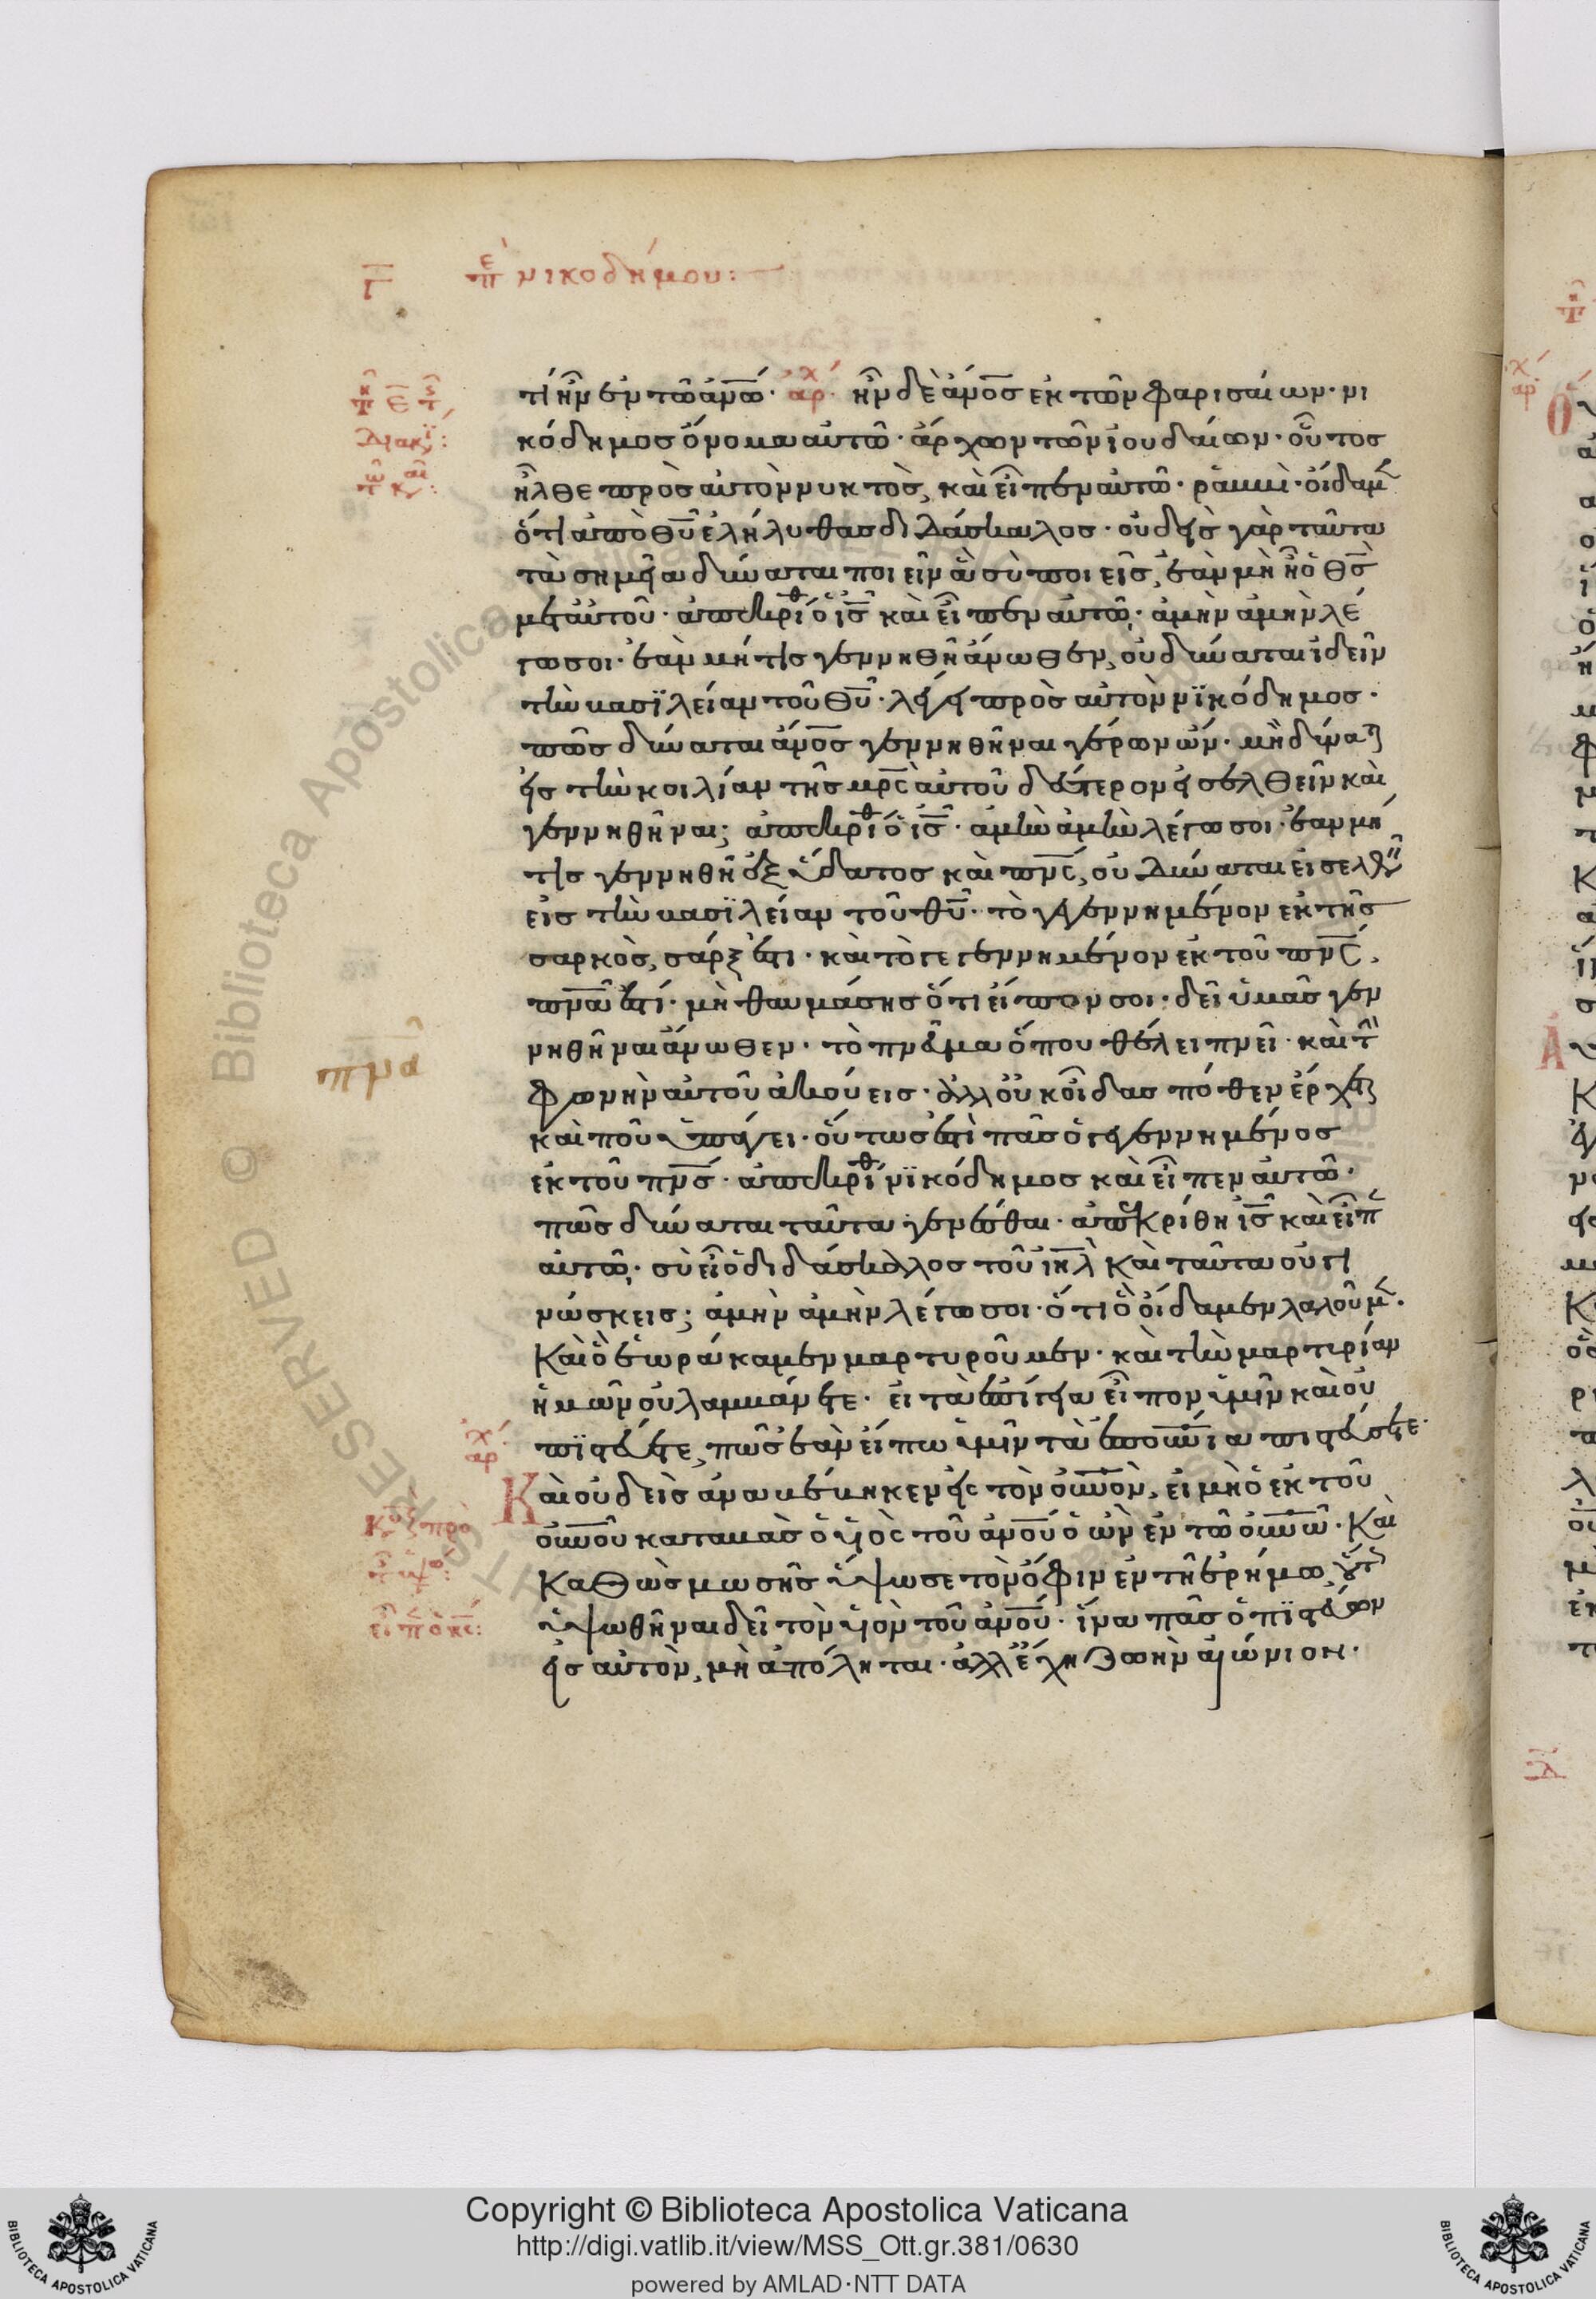 Γ πε νικοδήμου:
τί ἦν ἐν τῶ ἀνω· αρχ ἦν δὲ ἀνος ἐκ τῶν φαρισαίων· νι
κόδημος ὄνομα αὐτῶ· ἄρχων τῶν ἰουδαίων· οὗτος
ἦλθε πρὸς αὐτὸν νυκτὸς, καὶ εἶπεν αὐτῶ· ῥαββὶ· οἴδαμ
ὅτι ἀπὸ θυ ἐλήλυθας διδάσκαλος· οὐδεὶς γὰρ ταῦτα
τὰ σημεῖα δύναται ποιεῖν ἃ σὺ ποιεῖς, ἐὰν μὴ ἦ ὁ θς
μετ αὐτοῦ· ἀπεκρίθ ὁ ις καὶ εἶπεν αὐτῶ· ἀμὴν ἀμὴν λέ
γω σοι· ἐὰν μή τις γεννηθῆ ἄνωθεν, οὐ δύναται ἰδεῖν
τὴν βασϊλείαν τοῦ θυ· λέγει πρὸς αὐτὸν νϊκόδημος·
πῶς δύναται ἀνος γεννηθῆναι γέρων ὤν· μὴ δύνατ
εἰς τὴν κοιλίαν τῆς μρς αὐτοῦ δεύτερον εἰσελθεῖν καὶ
γεννηθῆναι; ἀπεκρίθ ὁ ις· ἀμὴν ἀμὴν λέγω σοι· ἐαν μή
τις γεννηθῆ ἐξ ὕδατος καὶ πνς, οὐ δύναται εἰσελθεῖν
εἰς τὴν βασϊλείαν τοῦ θυ· τὸ γεγεννημένον ἐκ τῆς
σαρκὸς, σάρξ ἐστι· καὶ τὸ γεγεννημένον ἐκ τοῦ πνς,
πνα ἐστί· μὴ θαυμάσης ὅτι εἶπον σοι· δεῖ ὑμᾶς γεν
νηθῆναι ἄνωθεν· τὸ πνεῦμα ὅπου θέλει πνεῖ· καὶ τ
φωνὴν αὐτοῦ ἀκούεις· ἀλλ οὐκ οἶδας πόθεν ἔρχετ
καὶ ποῦ ὑπάγει· οὕτως ἐστὶ πᾶς ὁ γεγεννημένος
ἐκ τοῦ πνς· ἀπεκρίθ νϊκόδημος καὶ εἶπεν αὐτῶ·
πῶς δύναται ταῦτα γενέσθαι· ἀπεκρίθη ις καὶ εἶπ
αὐτῶ· σὺ εἶ ὁ διδάσκαλος τοῦ ιηλ καὶ ταῦτα οὐ γι
νώσκεις; ἀμὴν ἀμὴν λέγω σοι· ὅτι ὃ οἴδαμεν λαλοῦμ·
Καὶ ὃ ἑωράκαμεν μαρτυροῦμεν· καὶ τὴν μαρτιρίαν
ἡμῶν οὐ λαμβάνετε· εἰ τὰ ἐπίγεια εἶπον ὑμῖν καὶ οὐ
πϊστεύετε, πῶς ἐὰν εἴπω ὑμῖν τὰ ἐπουνια πιστεύσετε·
αρχ
Καὶ οὐδεὶς ἀναβέβηκεν εἰς τὸν οὐνον, εἰ μὴ ὁ ἐκ τοῦ
οὐνου καταβὰς ὁ υἱὸς τοῦ ἀνου ὁ ὢν ἐν τῶ οὐνω· Καὶ
Καθὼς μωσῆς ὕψωσε τὸν ὄφιν ἐν τῆ ἐρήμω, οὕτ
ὑψωθῆναι δεῖ τὸν υἱὸν τοῦ ἀνου· ἵνα πᾶς ὁ πϊστεύων
εἰς αὐτὸν, μὴ ἀπόληται· ἀλλ ἔχη ζωὴν αἰώνιον·
πμα
Copyright © Biblioteca Apostolica Vaticana
http://digi.vatlib.it/view/MSS_Ott.gr.381/0630
powered by AMLAD·NTT DATA
BIBLIOTECA APOSTOLICA VATICANA
BIBLIOTECA APOSTOLICA VATICANA